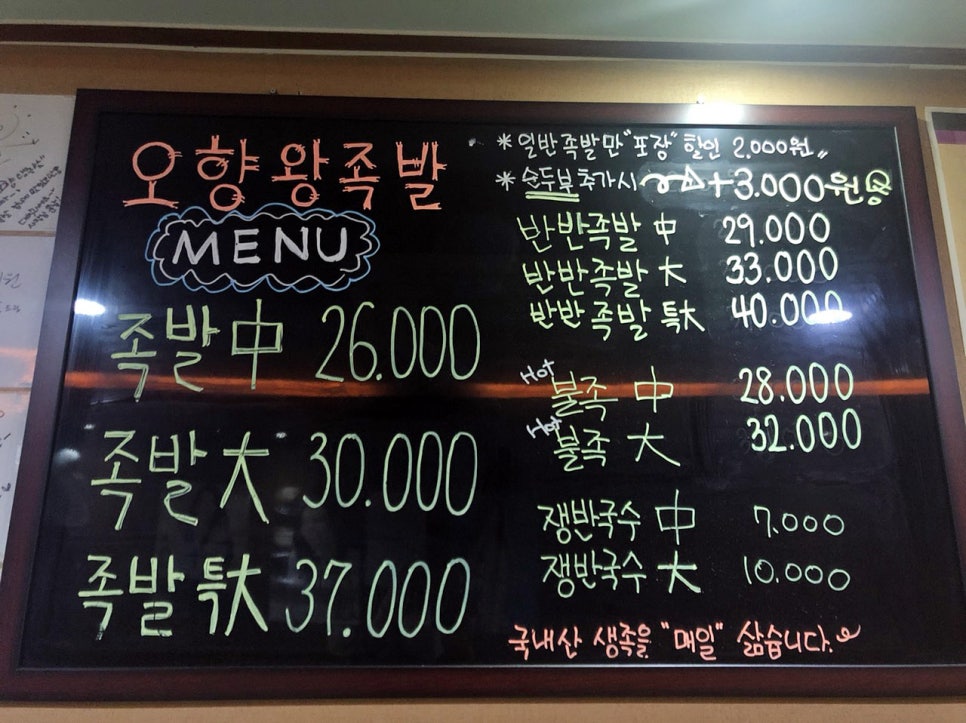 오향왕족발
MENU
족발 中 26.000
족발 大 30.000
족발 특大 37.000
* 일반족발만 "포장" 할인 2.000원〃
* 순두부추가시 +3.000원
반반족발 中 29.000
반반족발 大 33.000
반반족발 특大 40.000
Hot 불족 中 28.000
Hot 불족 大 32.000
쟁반국수 中 7.000
쟁반국수 大 10.000
국내산 생족을 "매일" 삶습니다.